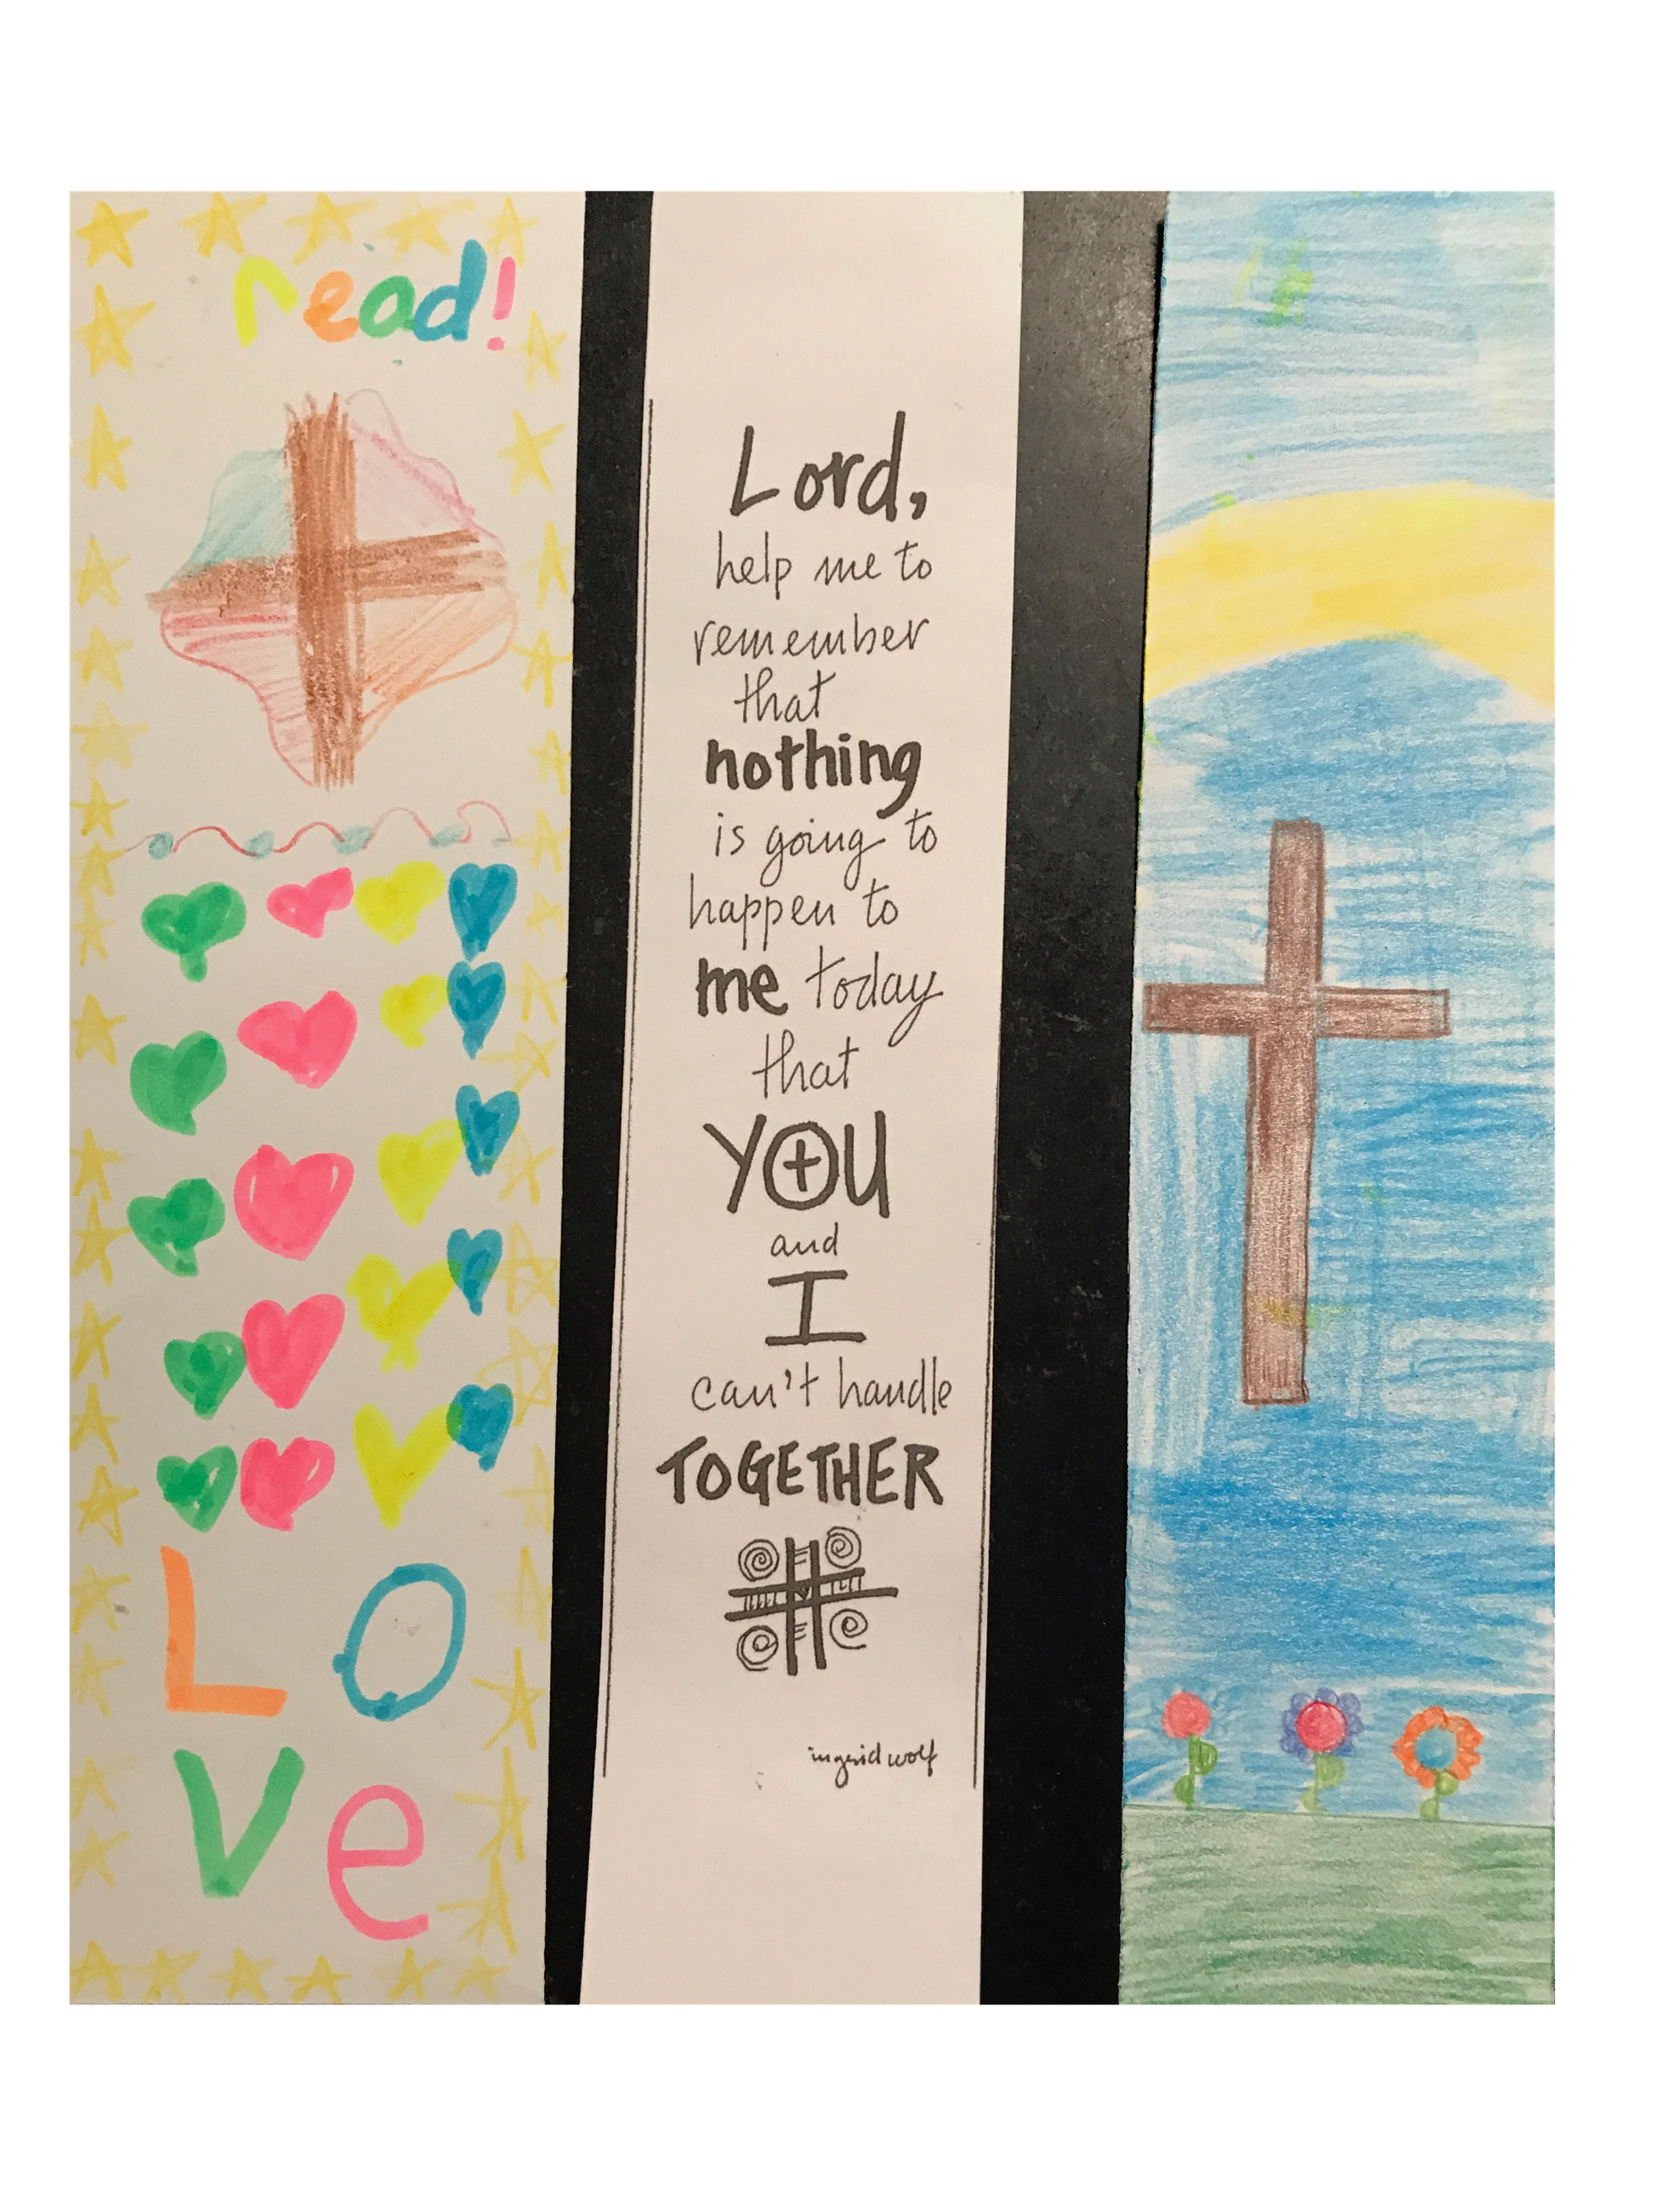 read!
LO
Ve
Lord,
help me to
remember
that
nothing
is going to
happen to
me today
that
YOU
and
I
can't handle
TOGETHER
ingrid wolf